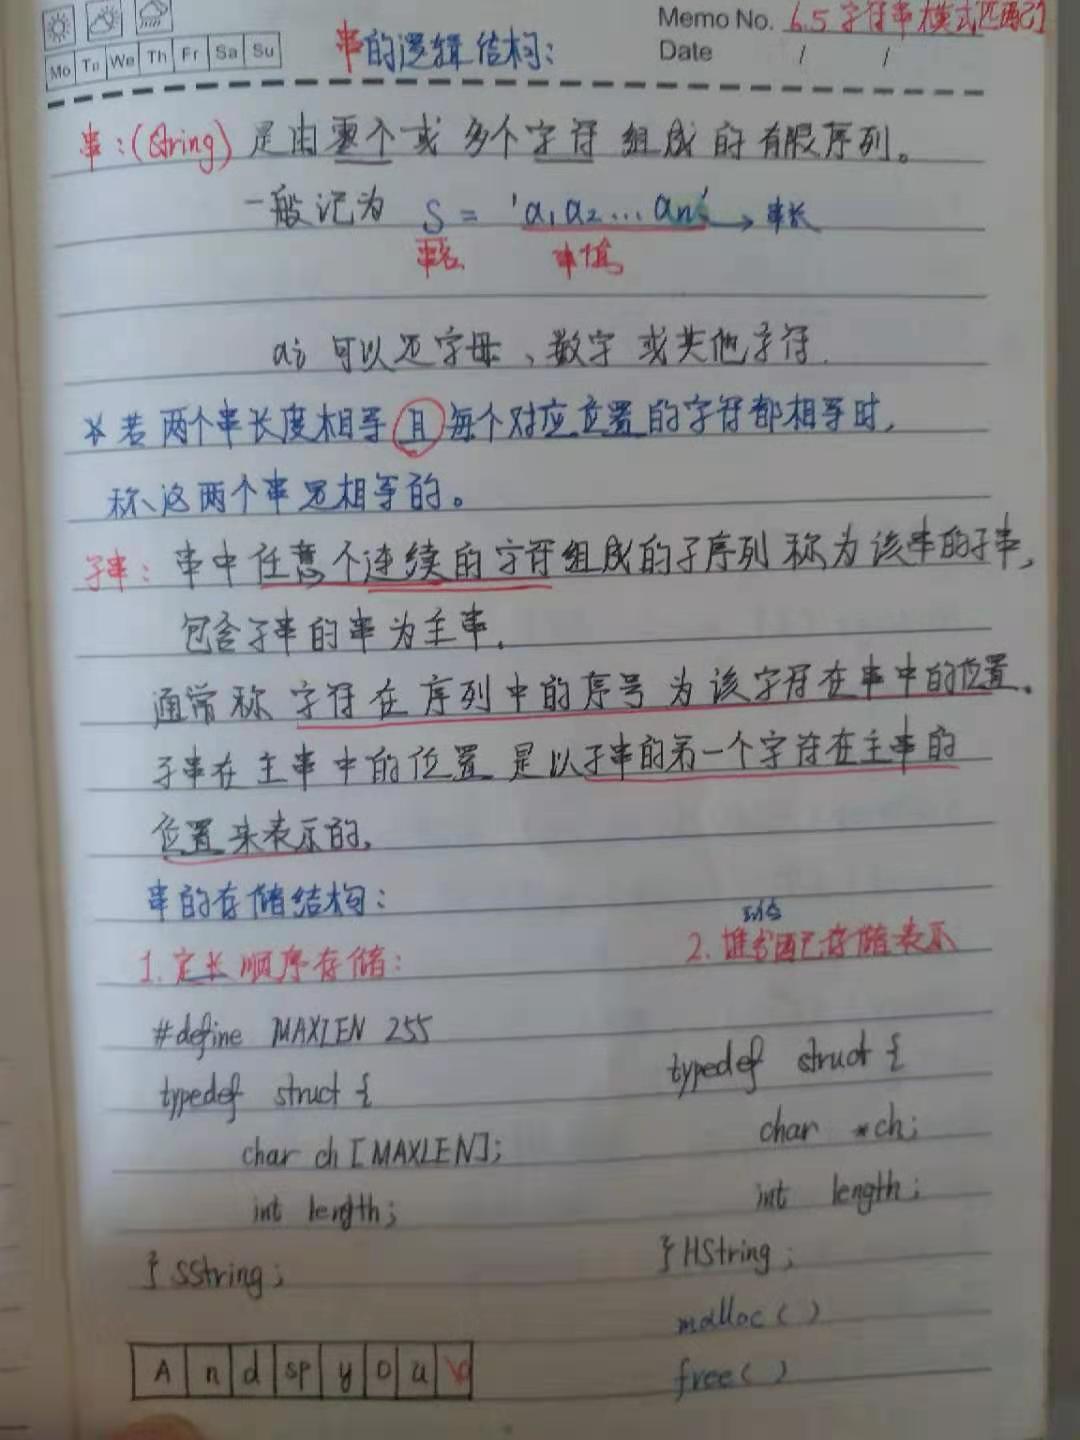 Memo No. 6.5 字符串模式匹配
Mo Tu We Th Fr Sa Su
Date / /
串的逻辑结构:
串:(String) 是由零个或多个字符组成的有限序列。
一般记为 S = 'a₁a₂...an' → 串长
串名 串值
ai 可以是字母、数字或其他字符.
* 若两个串长度相等且每个对应位置的字符都相等时,
称这两个串是相等的。
子串: 串中任意个连续的字符组成的子序列称为该串的子串,
包含子串的串为主串.
通常称字符在序列中的序号为该字符在串中的位置.
子串在主串中的位置是以子串的第一个字符在主串的
位置来表示的.
串的存储结构:
1. 定长顺序存储:
#define MAXLEN 255
typedef struct {
char ch [MAXLEN];
int length;
} SString;
A n d sp y o u \0
动态
2. 堆分配存储表示
typedef struct {
char *ch;
int length;
} HString;
malloc ( )
free ( )